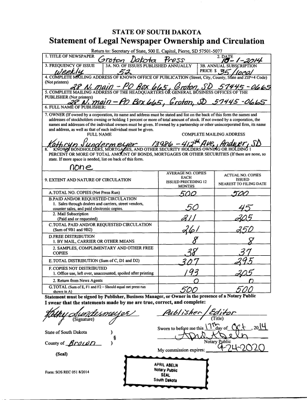 STATE OF SOUTH DAKOTA
Statement of Legal Newspaper Ownership and Circulation
Return to: Secretary of State, 500 E. Capitol, Pierre, SD 57501-5077
1. TITLE OF NEWSPAPER Groton Dakota Press 2. DATE 10-1-2014
3. FREQUENCY OF ISSUE Weekly 3A. NO. OF ISSUES PUBLISHED ANNUALLY 52 3B. ANNUAL SUBSCRIPTION PRICE: $ 35/local
4. COMPLETE MAILING ADDRESS OF KNOWN OFFICE OF PUBLICATION (Street, City, County, State and ZIP+4 Code) (Not printers)
28 N. Main - PO Box 665, Groton, SD 57445-0665
5. COMPLETE MAILING ADDRESS OF THE HEADQUARTERS OR GENERAL BUSINESS OFFICES OF THE PUBLISHER (Not printers)
28 N. main - PO Box 665, Groton, SD 57445-0665
6. FULL NAME OF PUBLISHER:
7. OWNER (If owned by a corporation, its name and address must be stated and list on the back of this form the names and addresses of stockholders owning or holding 1 percent or more of total amount of stock. If not owned by a corporation, the names and addresses of the individual owners must be given. If owned by a partnership or other unincorporated firm, its name and address, as well as that of each individual must be given.
FULL NAME COMPLETE MAILING ADDRESS
SD
8. KNOWN BONDHOLDERS, MORTGAGEES, AND OTHER SECURITY HOLDERS OWNING OR HOLDING 1 PERCENT OR MORE OF TOTAL AMOUNT OF BONDS, MORTGAGES OR OTHER SECURITIES (If there are none, so state. If more space is needed, list on back of this form.
none
9. EXTENT AND NATURE OF CIRCULATION AVERAGE NO. COPIES EACH ISSUED PRECEDING 12 MONTHS ACTUAL NO. COPIES ISSUED NEAREST TO FILING DATE
A. TOTAL NO. COPIES (Net Press Run) 500 500
B. PAID AND/OR REQUESTED CIRCULATION
1. Sales through dealers and carriers, street vendors, counter sales, and paid electronic copies. 50 45
2. Mail Subscription (Paid and or requested) 211 205
C. TOTAL PAID AND/OR REQUESTED CIRCULATION (Sum of 9B1 and 9B2) 261 250
D. FREE DISTRIBUTION
1. BY MAIL, CARRIER OR OTHER MEANS 8 8
2. SAMPLES, COMPLIMENTARY AND OTHER FREE COPIES 38 37
E. TOTAL DISTRIBUTION (Sum of C, D1 and D2) 307 295
F. COPIES NOT DISTRIBUTED
1. Office use, left over, unaccounted, spoiled after printing 193 205
2. Return from News Agents 0 0
G. TOTAL (Sum of E, F1 and F2 - Should equal net press run shown in A) 500 500
Statement must be signed by Publisher, Business Manager, or Owner in the presence of a Notary Public
I swear that the statements made by me are true, correct, and complete:
Publisher/Editor
(Signature) (Title)
State of South Dakota )
Sworn to before me this 17th day of Oct, 2014
§
County of Brown )
April Abeln
Notary Public
(Seal) My commission expires: 9-24-2020
APRIL ABELN
Notary Public
SEAL
South Dakota
Form: SOS REC 051 8/2014